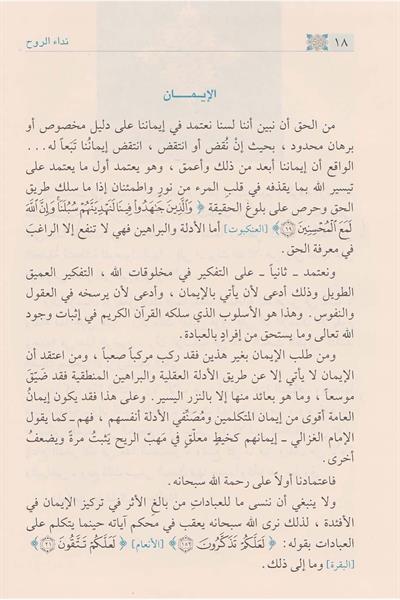 ١٨ نداء الروح
الإيمـــان
من الحق أن نبين أننا لسنا نعتمد في إيماننا على دليل مخصوص أو
برهان محدود ، بحيث إنْ نُقض أو انتقض ، انتقض إيمانُنا تَبَعاً له . . .
الواقع أن إيماننا أبعد من ذلك وأعمق ، وهو يعتمد أول ما يعتمد على
تيسير الله بما يقذفه في قلبِ المرء من نورٍ واطمئنان إذا ما سلك طريق
الحق وحرص على بلوغ الحقيقة ﴿ وَالَّذِينَ جَاهَدُوا فِينَا لَنَهْدِيَنَّهُمْ سُبُلَنَا وَإِنَّ اللَّهَ
لَمَعَ الْمُحْسِنِينَ ٦٩ ﴾ [العنكبوت] أما الأدلة والبراهين فهي لا تنفع إلا الراغبَ
في معرفة الحق .
ونعتمد ـ ثانياً ـ على التفكير في مخلوقات الله ، التفكير العميق
الطويل وذلك أدعى لأن يأتي بالإيمان ، وأدعى لأن يرسخه في العقول
والنفوس . وهذا هو الأسلوب الذي سلكه القرآن الكريم في إثبات وجود
الله تعالى وما يستحق من إفرادٍ بالعبادة .
ومن طلب الإيمان بغير هذين فقد ركب مركباً صعباً ، ومن اعتقد أن
الإيمان لا يأتي إلا عن طريق الأدلة العقلية والبراهين المنطقية فقد ضَيّقَ
موسعاً ، وما هو بعائد منها إلا بالنزر اليسير . وعلى هذا فقد يكون إيمانُ
العامة أقوى من إيمان المتكلمين ومُصَنِّفي الأدلة أنفسهم ، فهم ـ كما يقول
الإمام الغزالي ـ إيمانهم كخيطٍ معلّقٍ في مَهبّ الريح يَثبتُ مرةً ويضعفُ
أخرى .
فاعتمادنا أولاً على رحمة الله سبحانه .
ولا ينبغي أن ننسى ما للعبادات من بالغِ الأثر في تركيز الإيمان في
الأفئدة ، لذلك نرى الله سبحانه يعقب في محكم آياته حينما يتكلم على
العبادات بقوله : ﴿ لَعَلَّكُمْ تَذَكَّرُونَ ١٥٢ ﴾ [الأنعام] ﴿ لَعَلَّكُمْ تَتَّقُونَ ٢١ ﴾
[البقرة] وما إلى ذلك .